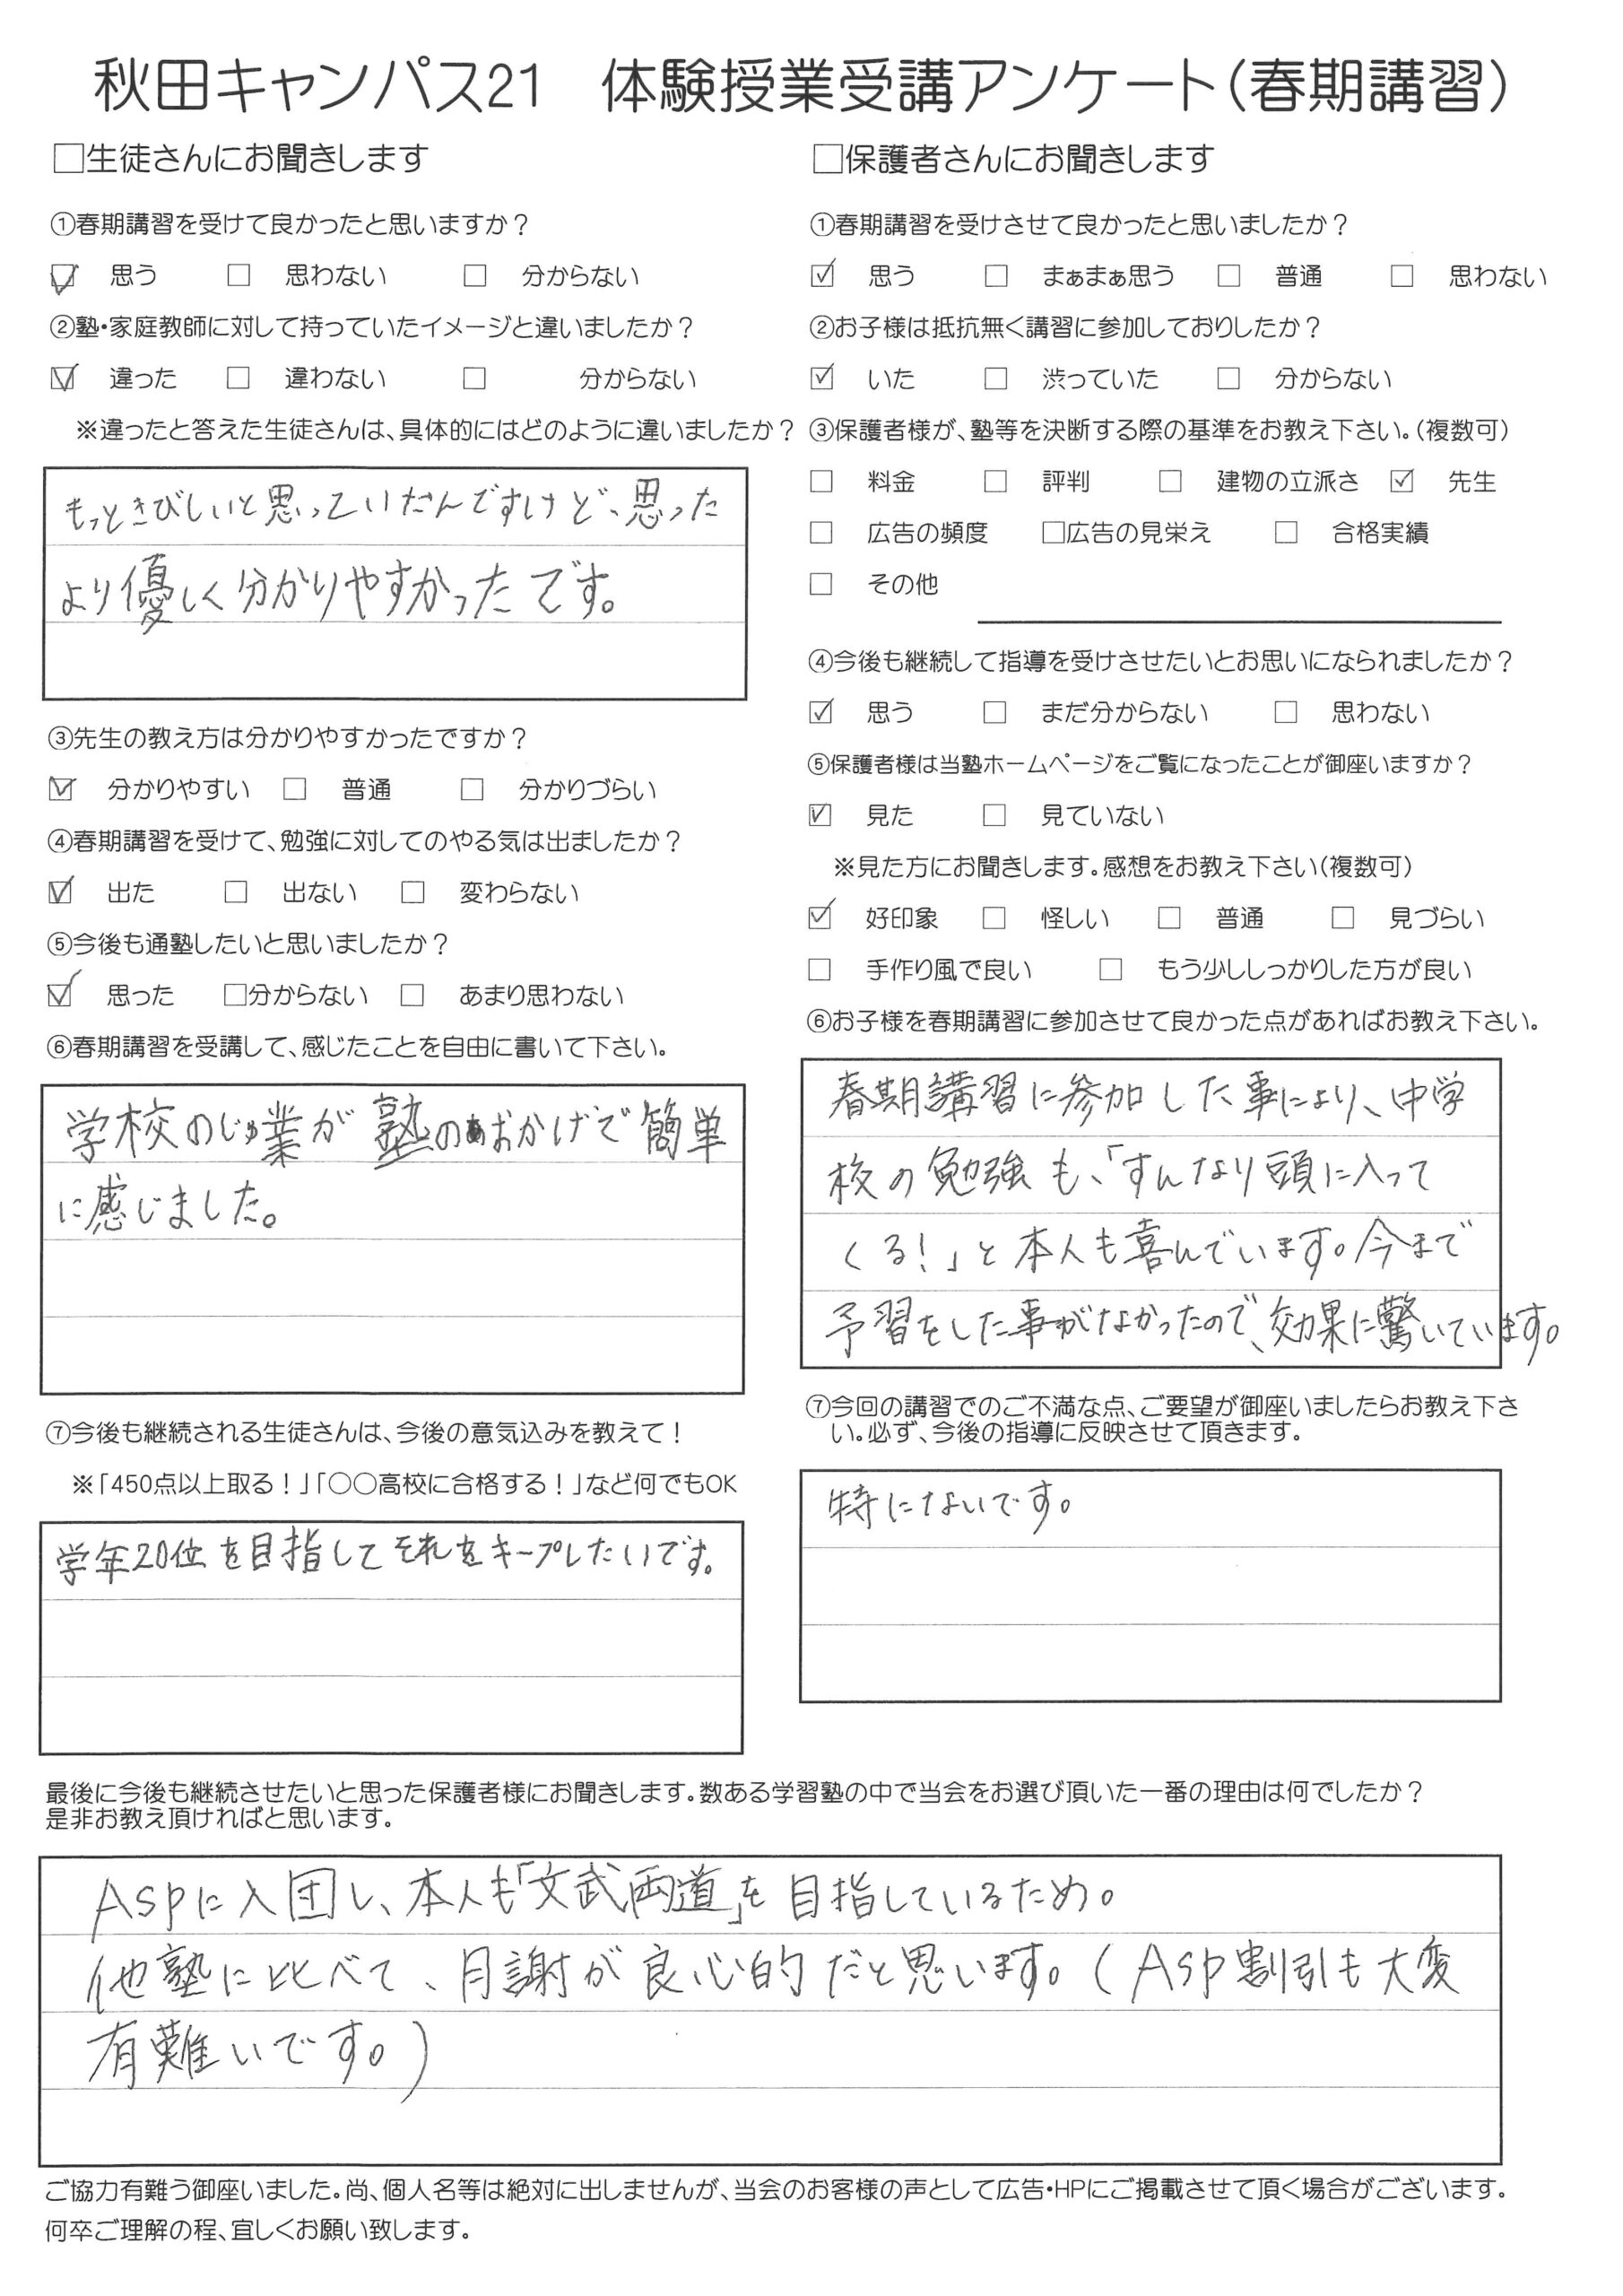 秋田キャンパス21　体験授業受講アンケート（春期講習）
□生徒さんにお聞きします
①春期講習を受けて良かったと思いますか？
☑ 思う □ 思わない □ 分からない
②塾・家庭教師に対して持っていたイメージと違いましたか？
☑ 違った □ 違わない □ 分からない
※違ったと答えた生徒さんは、具体的にはどのように違いましたか？
もっときびしいと思っていたんですけど、思った
より優しく分かりやすかったです。
③先生の教え方は分かりやすかったですか？
☑ 分かりやすい □ 普通 □ 分かりづらい
④春期講習を受けて、勉強に対してのやる気は出ましたか？
☑ 出た □ 出ない □ 変わらない
⑤今後も通塾したいと思いましたか？
☑ 思った □分からない □ あまり思わない
⑥春期講習を受講して、感じたことを自由に書いて下さい。
学校のじゅ業が塾のおかげで簡単
に感じました。
⑦今後も継続される生徒さんは、今後の意気込みを教えて！
※「450点以上取る！」「〇〇高校に合格する！」など何でもOK
学年20位を目指してそれをキープしたいです。
□保護者さんにお聞きします
①春期講習を受けさせて良かったと思いましたか？
☑ 思う □ まぁまぁ思う □ 普通 □ 思わない
②お子様は抵抗無く講習に参加しておりしたか？
☑ いた □ 渋っていた □ 分からない
③保護者様が、塾等を決断する際の基準をお教え下さい。（複数可）
□ 料金 □ 評判 □ 建物の立派さ ☑ 先生
□ 広告の頻度 □広告の見栄え □ 合格実績
□ その他
④今後も継続して指導を受けさせたいとお思いになられましたか？
☑ 思う □ まだ分からない □ 思わない
⑤保護者様は当塾ホームページをご覧になったことが御座いますか？
☑ 見た □ 見ていない
※見た方にお聞きします。感想をお教え下さい（複数可）
☑ 好印象 □ 怪しい □ 普通 □ 見づらい
□ 手作り風で良い □ もう少ししっかりした方が良い
⑥お子様を春期講習に参加させて良かった点があればお教え下さい。
春期講習に参加した事により、中学
校の勉強も、「すんなり頭に入って
くる！」と本人も喜んでいます。今まで
予習をした事がなかったので、効果に驚いています。
⑦今回の講習でのご不満な点、ご要望が御座いましたらお教え下さ
い。必ず、今後の指導に反映させて頂きます。
特にないです。
最後に今後も継続させたいと思った保護者様にお聞きします。数ある学習塾の中で当会をお選び頂いた一番の理由は何でしたか？
是非お教え頂ければと思います。
ASPに入団し、本人も「文武両道」を目指しているため。
他塾に比べて、月謝が良心的だと思います。（ASP割引も大変
有難いです。）
ご協力有難う御座いました。尚、個人名等は絶対に出しませんが、当会のお客様の声として広告・HPにご掲載させて頂く場合がございます。
何卒ご理解の程、宜しくお願い致します。